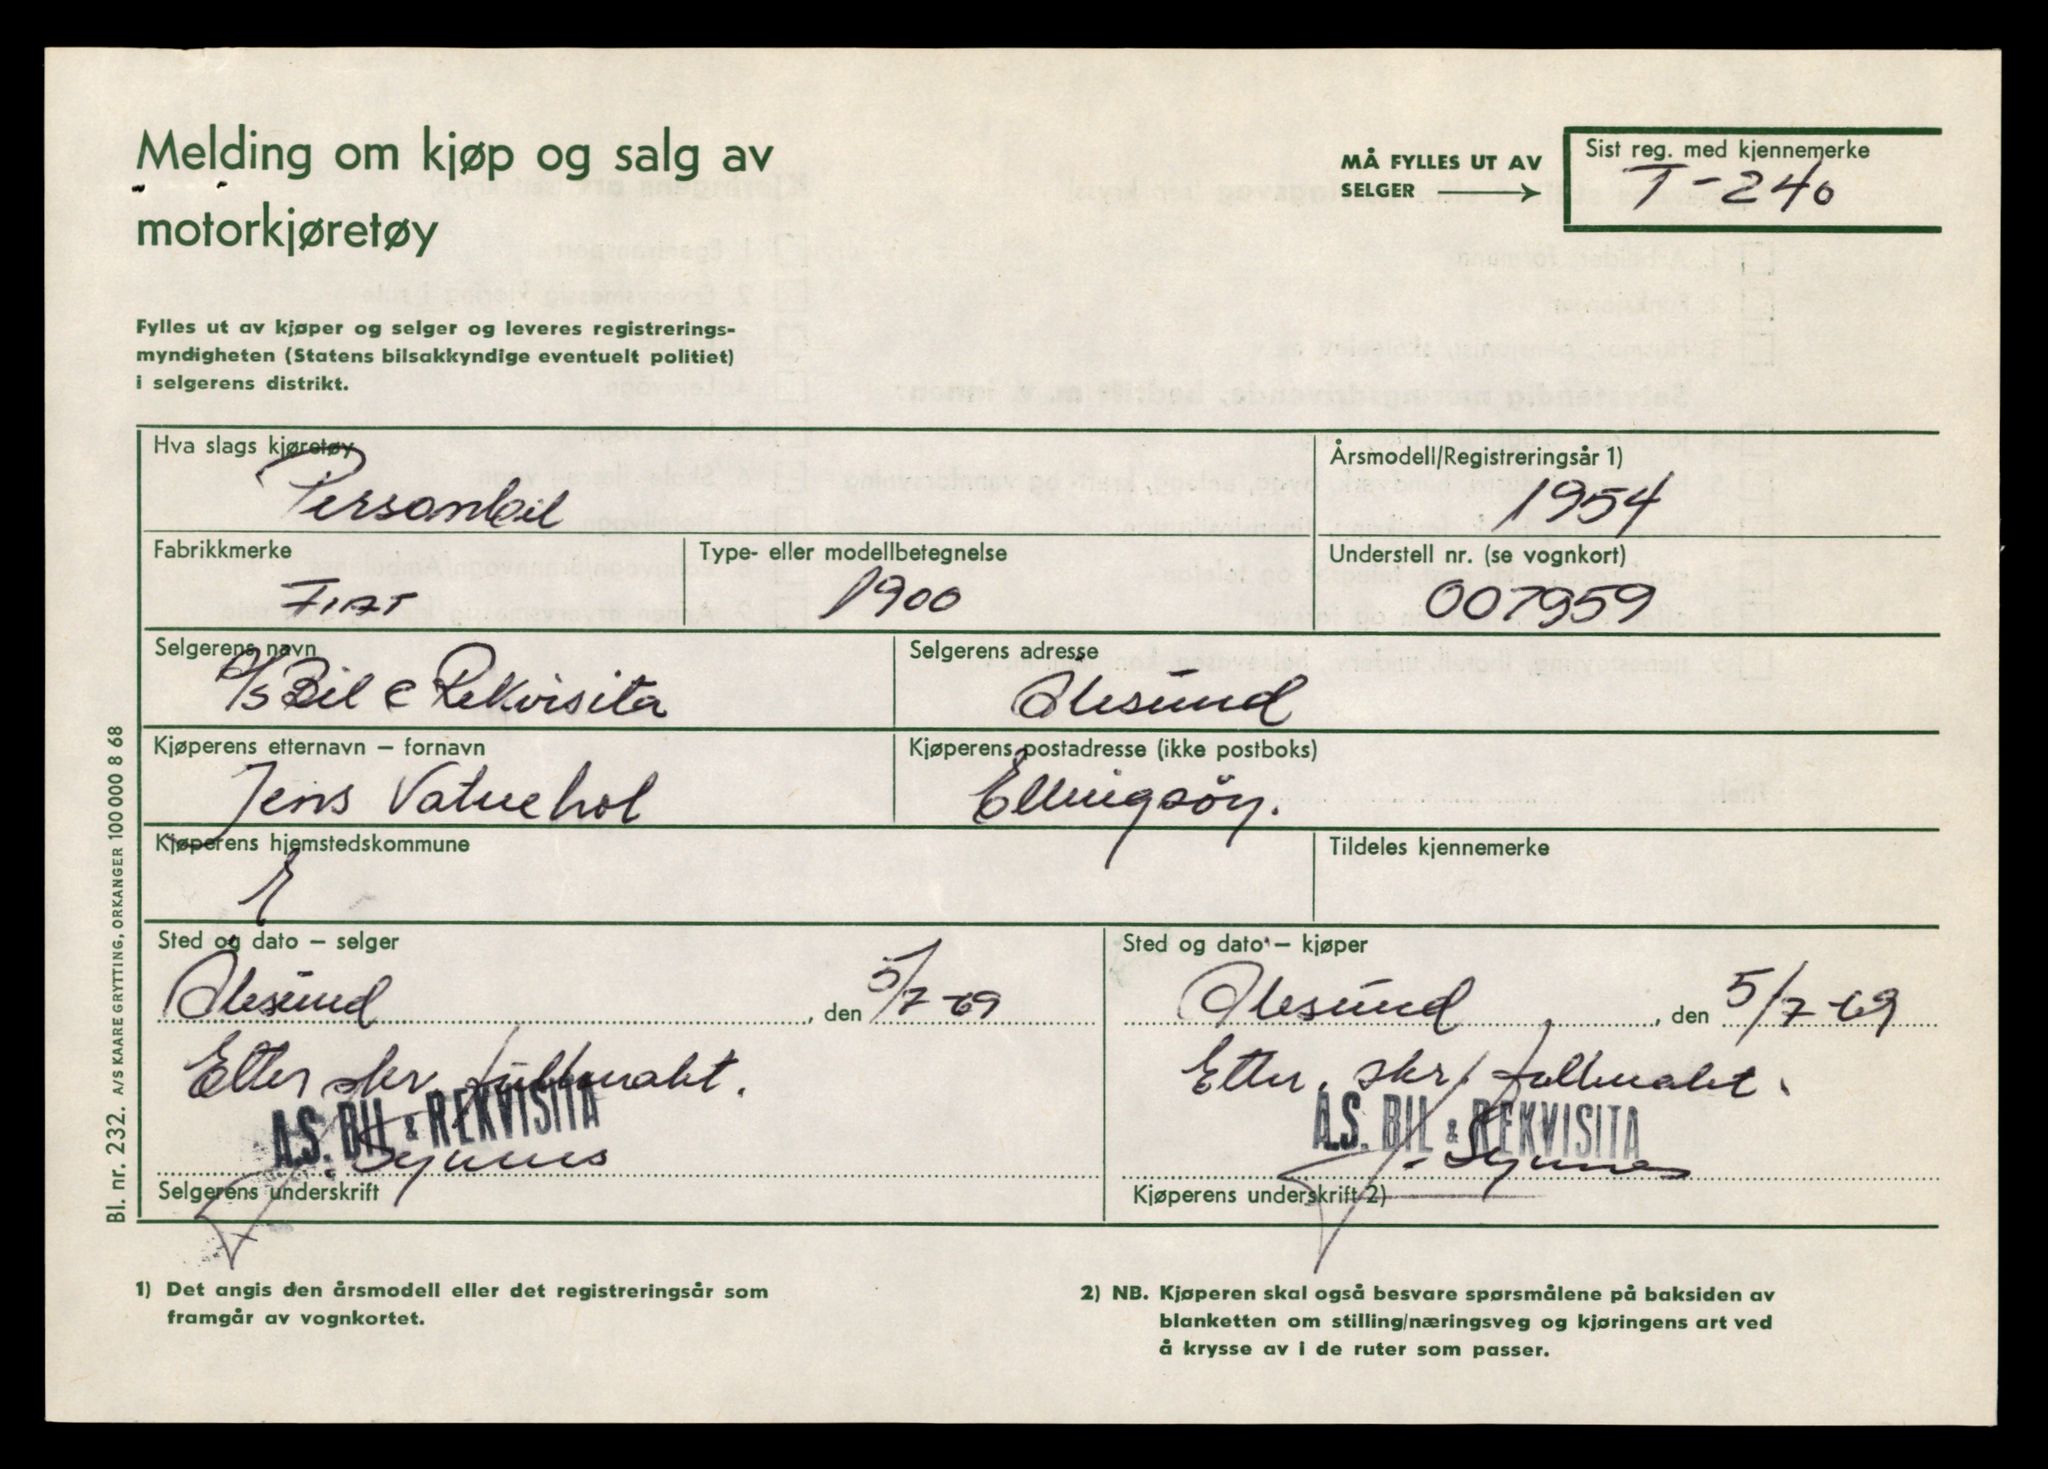 Melding om kjøp og salg av
motorkjøretøy
MÅ FYLLES UT AV
SELGER
Sist reg. med kjennemerke
T-240
Fylles ut av kjøper og selger og leveres registrerings-
myndigheten (Statens bilsakkyndige eventuelt politiet)
i selgerens distrikt.
Hva slags kjøretøy
Personbil
Årsmodell/Registreringsår 1)
1954
Fabrikkmerke
FIAT
Type- eller modellbetegnelse
1900
Understell nr. (se vognkort)
007959
Selgerens navn
A/S Bil & Rekvisita
Selgerens adresse
Ålesund
Kjøperens etternavn – fornavn
Jens Vatnehol
Kjøperens postadresse (ikke postboks)
Ellingsöy.
Kjøperens hjemstedskommune
Tildeles kjennemerke
Sted og dato – selger
Ålesund, den 5/7-69
Etter skr. fullmakt.
A.S. BIL & REKVISITA
J. Synnes
Selgerens underskrift
Sted og dato – kjøper
Ålesund, den 5/7-69
Etter skr. fullmakt.
A.S. BIL & REKVISITA
J. Synnes
Kjøperens underskrift 2)
1) Det angis den årsmodell eller det registreringsår som
framgår av vognkortet.
2) NB. Kjøperen skal også besvare spørsmålene på baksiden av
blanketten om stilling/næringsveg og kjøringens art ved
å krysse av i de ruter som passer.
Bl. nr. 232. A/S KAARE GRYTTING, ORKANGER 100 000 8 68